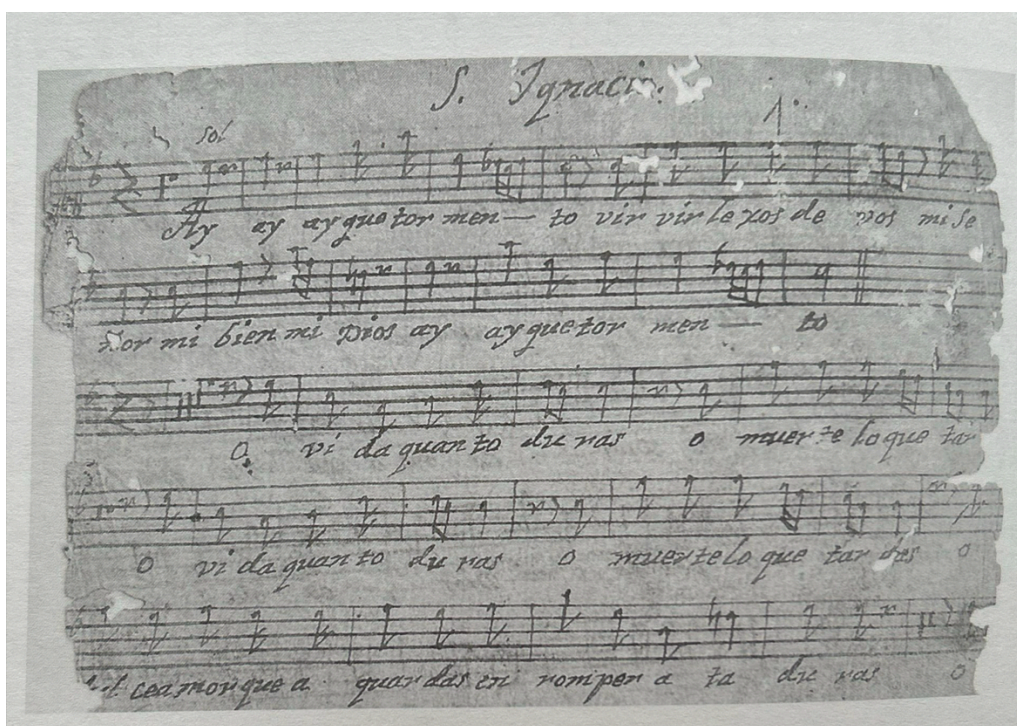 S. Ignacio.
1.
sol
Ay ay ay que tor men — to vir vir le xos de vos mi se
ñor mi bien mi Dios ay ay que tor men — to
O vi da quan to du ras o muer te lo que tar
O vi da quan to du ras o muer te lo que tar das o
ce amor que a guar das en rom per a ta du ras o